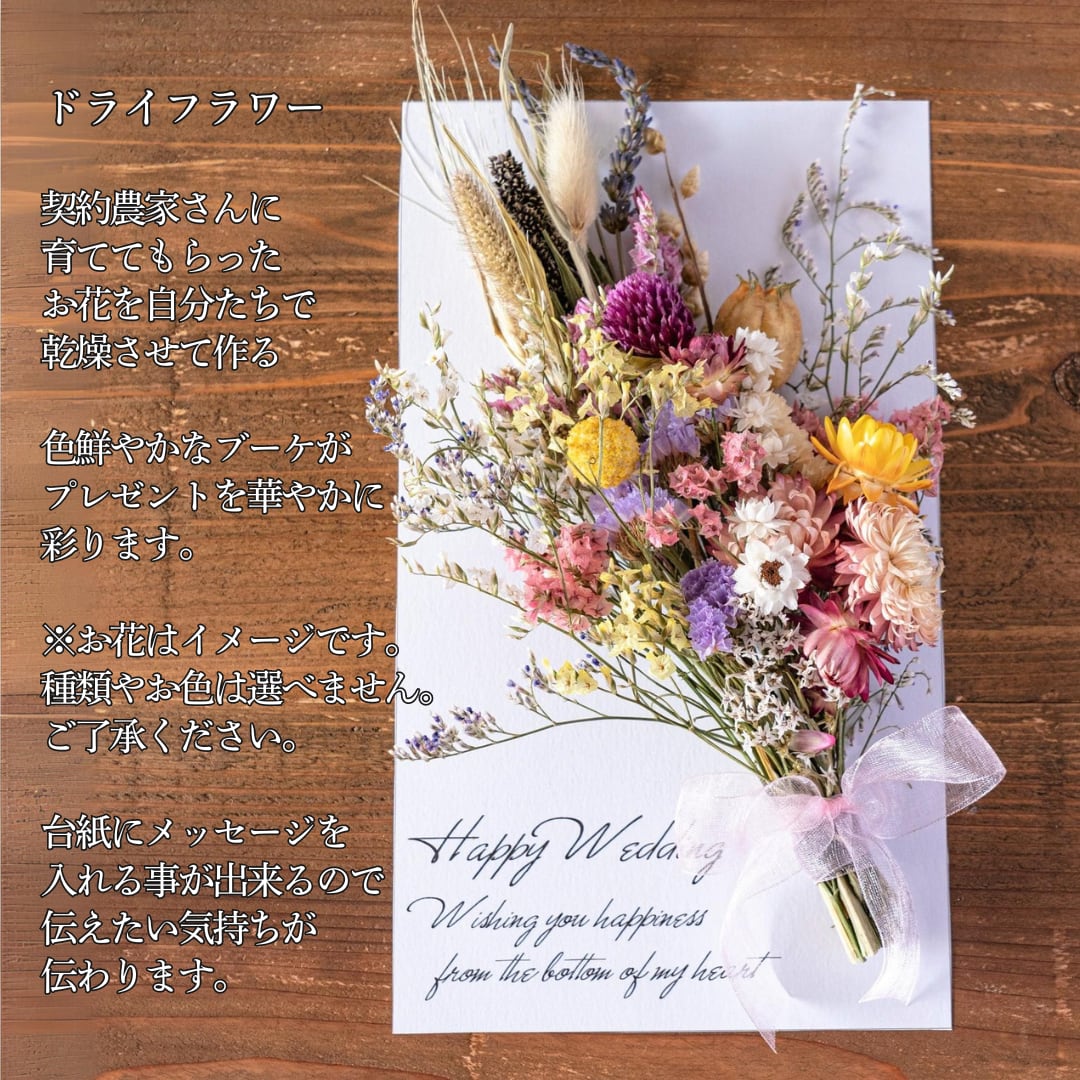 ドライフラワー
契約農家さんに
育ててもらった
お花を自分たちで
乾燥させて作る
色鮮やかなブーケが
プレゼントを華やかに
彩ります。
※お花はイメージです。
種類やお色は選べません。
ご了承ください。
台紙にメッセージを
入れる事が出来るので
伝えたい気持ちが
伝わります。
Happy Wedding
Wishing you happiness
from the bottom of my heart